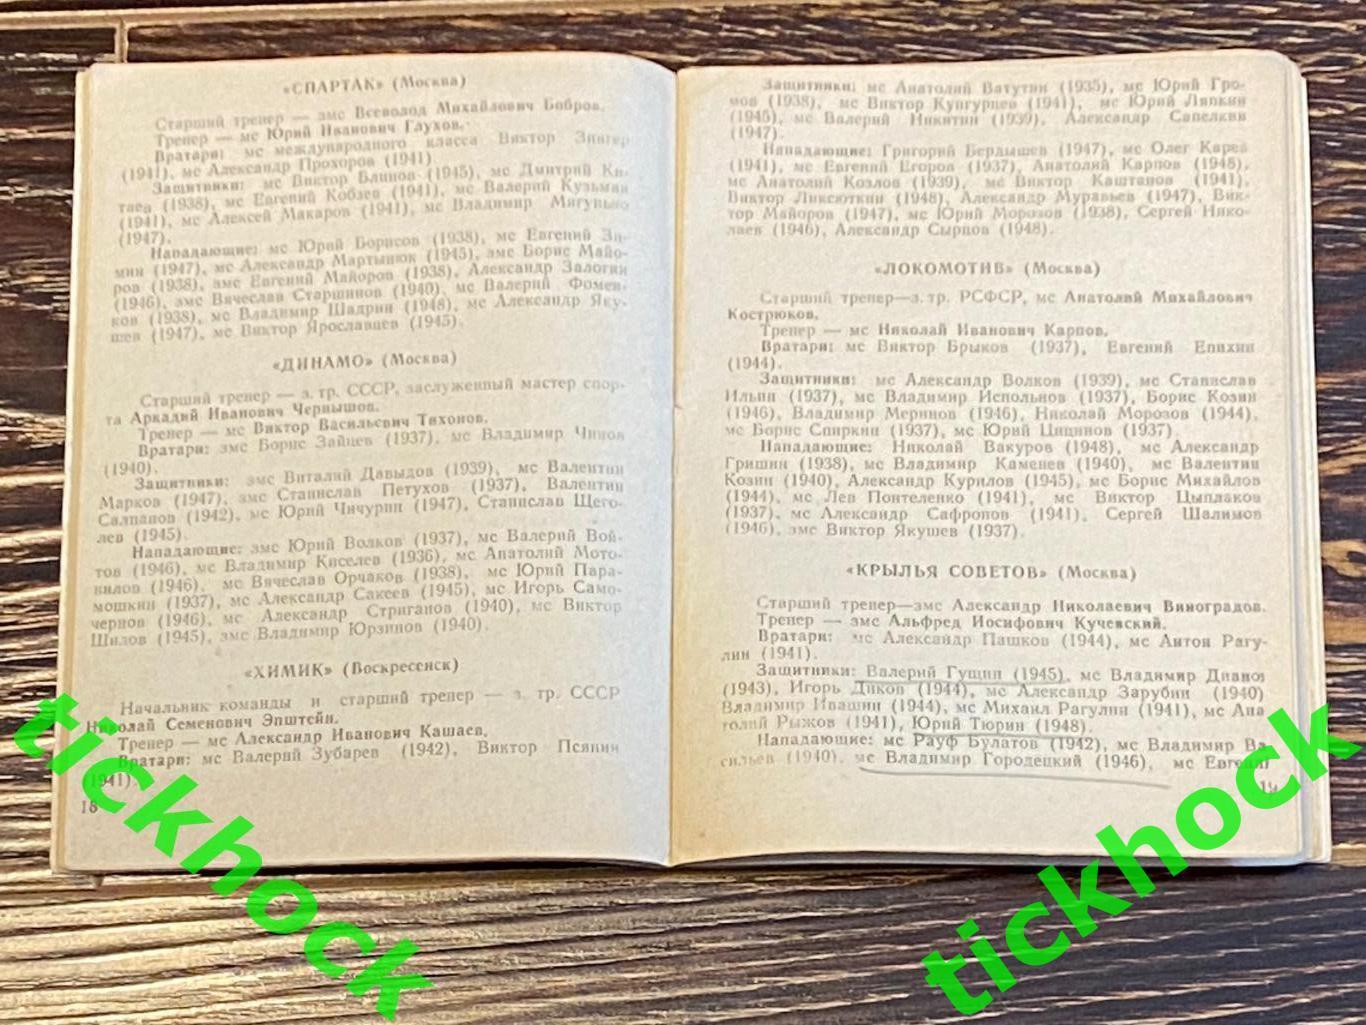 «СПАРТАК» (Москва)
Старший тренер — змс Всеволод Михайлович Бобров.
Тренер — мс Юрий Иванович Глухов.
Вратари: мс международного класса Виктор Зингер
(1941), мс Александр Прохоров (1941).
Защитники: мс Виктор Блинов (1945), мс Дмитрий Ки-
таев (1938), мс Евгений Кобзев (1941), мс Валерий Кузьмин
(1941), мс Алексей Макаров (1941), мс Владимир Мигунько
(1947).
Нападающие: мс Юрий Борисов (1938), мс Евгений Зи-
мин (1947), мс Александр Мартынюк (1945), змс Борис Майо-
ров (1938), змс Евгений Майоров (1938), Александр Залогин
(1946), змс Вячеслав Старшинов (1940), мс Валерий Фомен-
ков (1938), мс Владимир Шадрин (1948), мс Александр Яку-
шев (1947), мс Виктор Ярославцев (1945).
«ДИНАМО» (Москва)
Старший тренер — з. тр. СССР, заслуженный мастер спор-
та Аркадий Иванович Чернышов.
Тренер — мс Виктор Васильевич Тихонов.
Вратари: змс Борис Зайцев (1937), мс Владимир Чинов
(1940).
Защитники: змс Виталий Давыдов (1939), мс Валентин
Марков (1947), змс Станислав Петухов (1937), Валентин
Салпанов (1942), мс Юрий Чичурин (1947), Станислав Щего-
лев (1945).
Нападающие: змс Юрий Волков (1937), мс Валерий Вой-
тов (1946), мс Владимир Киселев (1936), мс Анатолий Мото-
вилов (1946), мс Вячеслав Орчаков (1938), мс Юрий Пара-
мошкин (1937), мс Александр Сакеев (1945), мс Игорь Само-
чернов (1946), мс Александр Стриганов (1940), мс Виктор
Шилов (1945), змс Владимир Юрзинов (1940).
«ХИМИК» (Воскресенск)
Начальник команды и старший тренер — з. тр. СССР
Николай Семенович Эпштейн.
Тренер — мс Александр Иванович Кашаев.
Вратари: мс Валерий Зубарев (1942), Виктор Псянин
(1941).
18
Защитники: мс Анатолий Ватутин (1935), мс Юрий Гро-
мов (1938), мс Виктор Кунгурцев (1941), мс Юрий Ляпкин
(1945), мс Валерий Никитин (1939), Александр Сапелкин
(1947).
Нападающие: Григорий Бердышев (1947), мс Олег Карев
(1941), мс Евгений Егоров (1937), Анатолий Карпов (1948),
мс Анатолий Козлов (1939), мс Виктор Каштанов (1941),
Виктор Ликсюткин (1948), Александр Муравьев (1947), Вик-
тор Майоров (1947), мс Юрий Морозов (1938), Сергей Нико-
лаев (1946), Александр Сырцов (1948).
«ЛОКОМОТИВ» (Москва)
Старший тренер—з. тр. РСФСР, мс Анатолий Михайлович
Кострюков.
Тренер — мс Николай Иванович Карпов.
Вратари: мс Виктор Брыков (1937), Евгений Епихин
(1944).
Защитники: мс Александр Волков (1939), мс Станислав
Ильин (1937), мс Владимир Испольнов (1937), Борис Козин
(1946), Владимир Меринов (1946), Николай Морозов (1944),
мс Борис Спиркин (1937), мс Юрий Цицинов (1937).
Нападающие: Николай Вакуров (1948), мс Александр
Гришин (1938), мс Владимир Каменев (1940), мс Валентин
Козин (1940), Александр Курилов (1945), мс Борис Михайлов
(1944), мс Лев Понтеленко (1941), мс Виктор Цыплаков
(1937), мс Александр Сафронов (1941), Сергей Шалимов
(1946), змс Виктор Якушев (1937).
«КРЫЛЬЯ СОВЕТОВ» (Москва)
Старший тренер—змс Александр Николаевич Виноградов.
Тренер — змс Альфред Иосифович Кучевский.
Вратари: мс Александр Пашков (1944), мс Антон Рагу-
лин (1941).
Защитники: Валерий Гущин (1945), мс Владимир Дианов
(1943), Игорь Диков (1944), мс Александр Зарубин (1940)
Владимир Ивашин (1944), мс Михаил Рагулин (1941), мс Ана
толий Рыжов (1941), Юрий Тюрин (1948).
Нападающие: мс Рауф Булатов (1942), мс Владимир Ва
сильев (1940), мс Владимир Городецкий (1946), мс Евгений
19
tickhock
tickhock